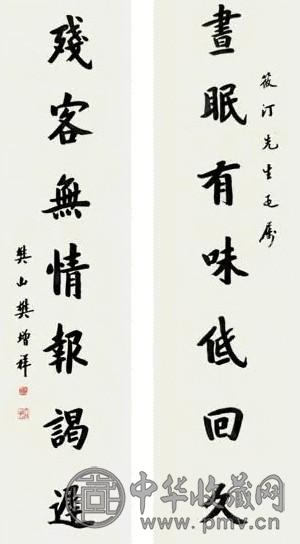 筱汀先生疋属
晝眠有味低回久
殘客無情報謁遲
樊山樊增祥
中华收藏网
www.pmv.cn